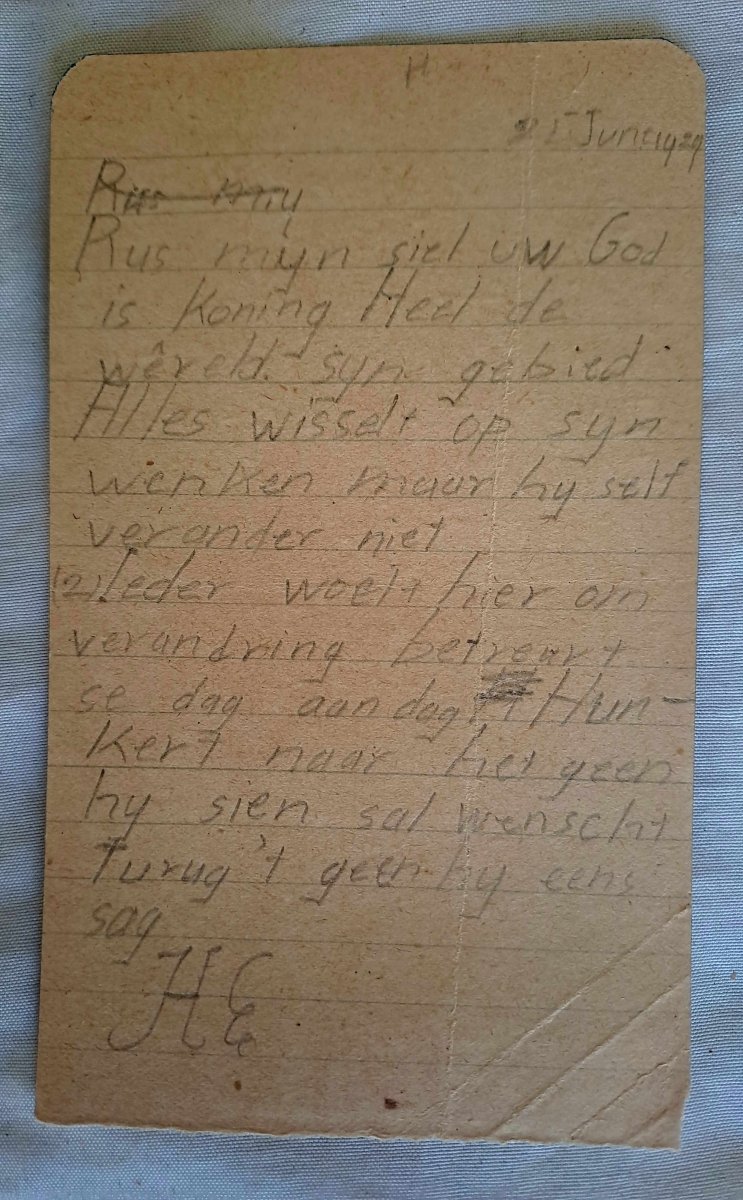 H
25 June 1929
Rus my
Rus mijn siel uw God
is Koning Heel de
wêreld syn gebied
Alles wisselt op syn
wenken maar hy self
verander niet
(2) Ieder woelt hier om
verandring betreurt
se dag aan dag Hun-
kert naar het geen
hy sien sal wenscht
Turug 't geen hy eens
sag
HE